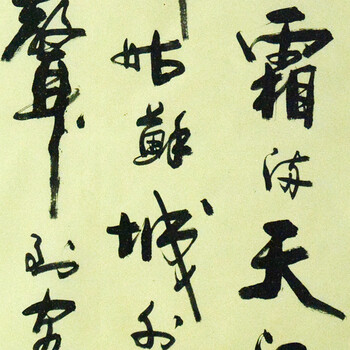 霜滿天
姑蘇城外
聲到客